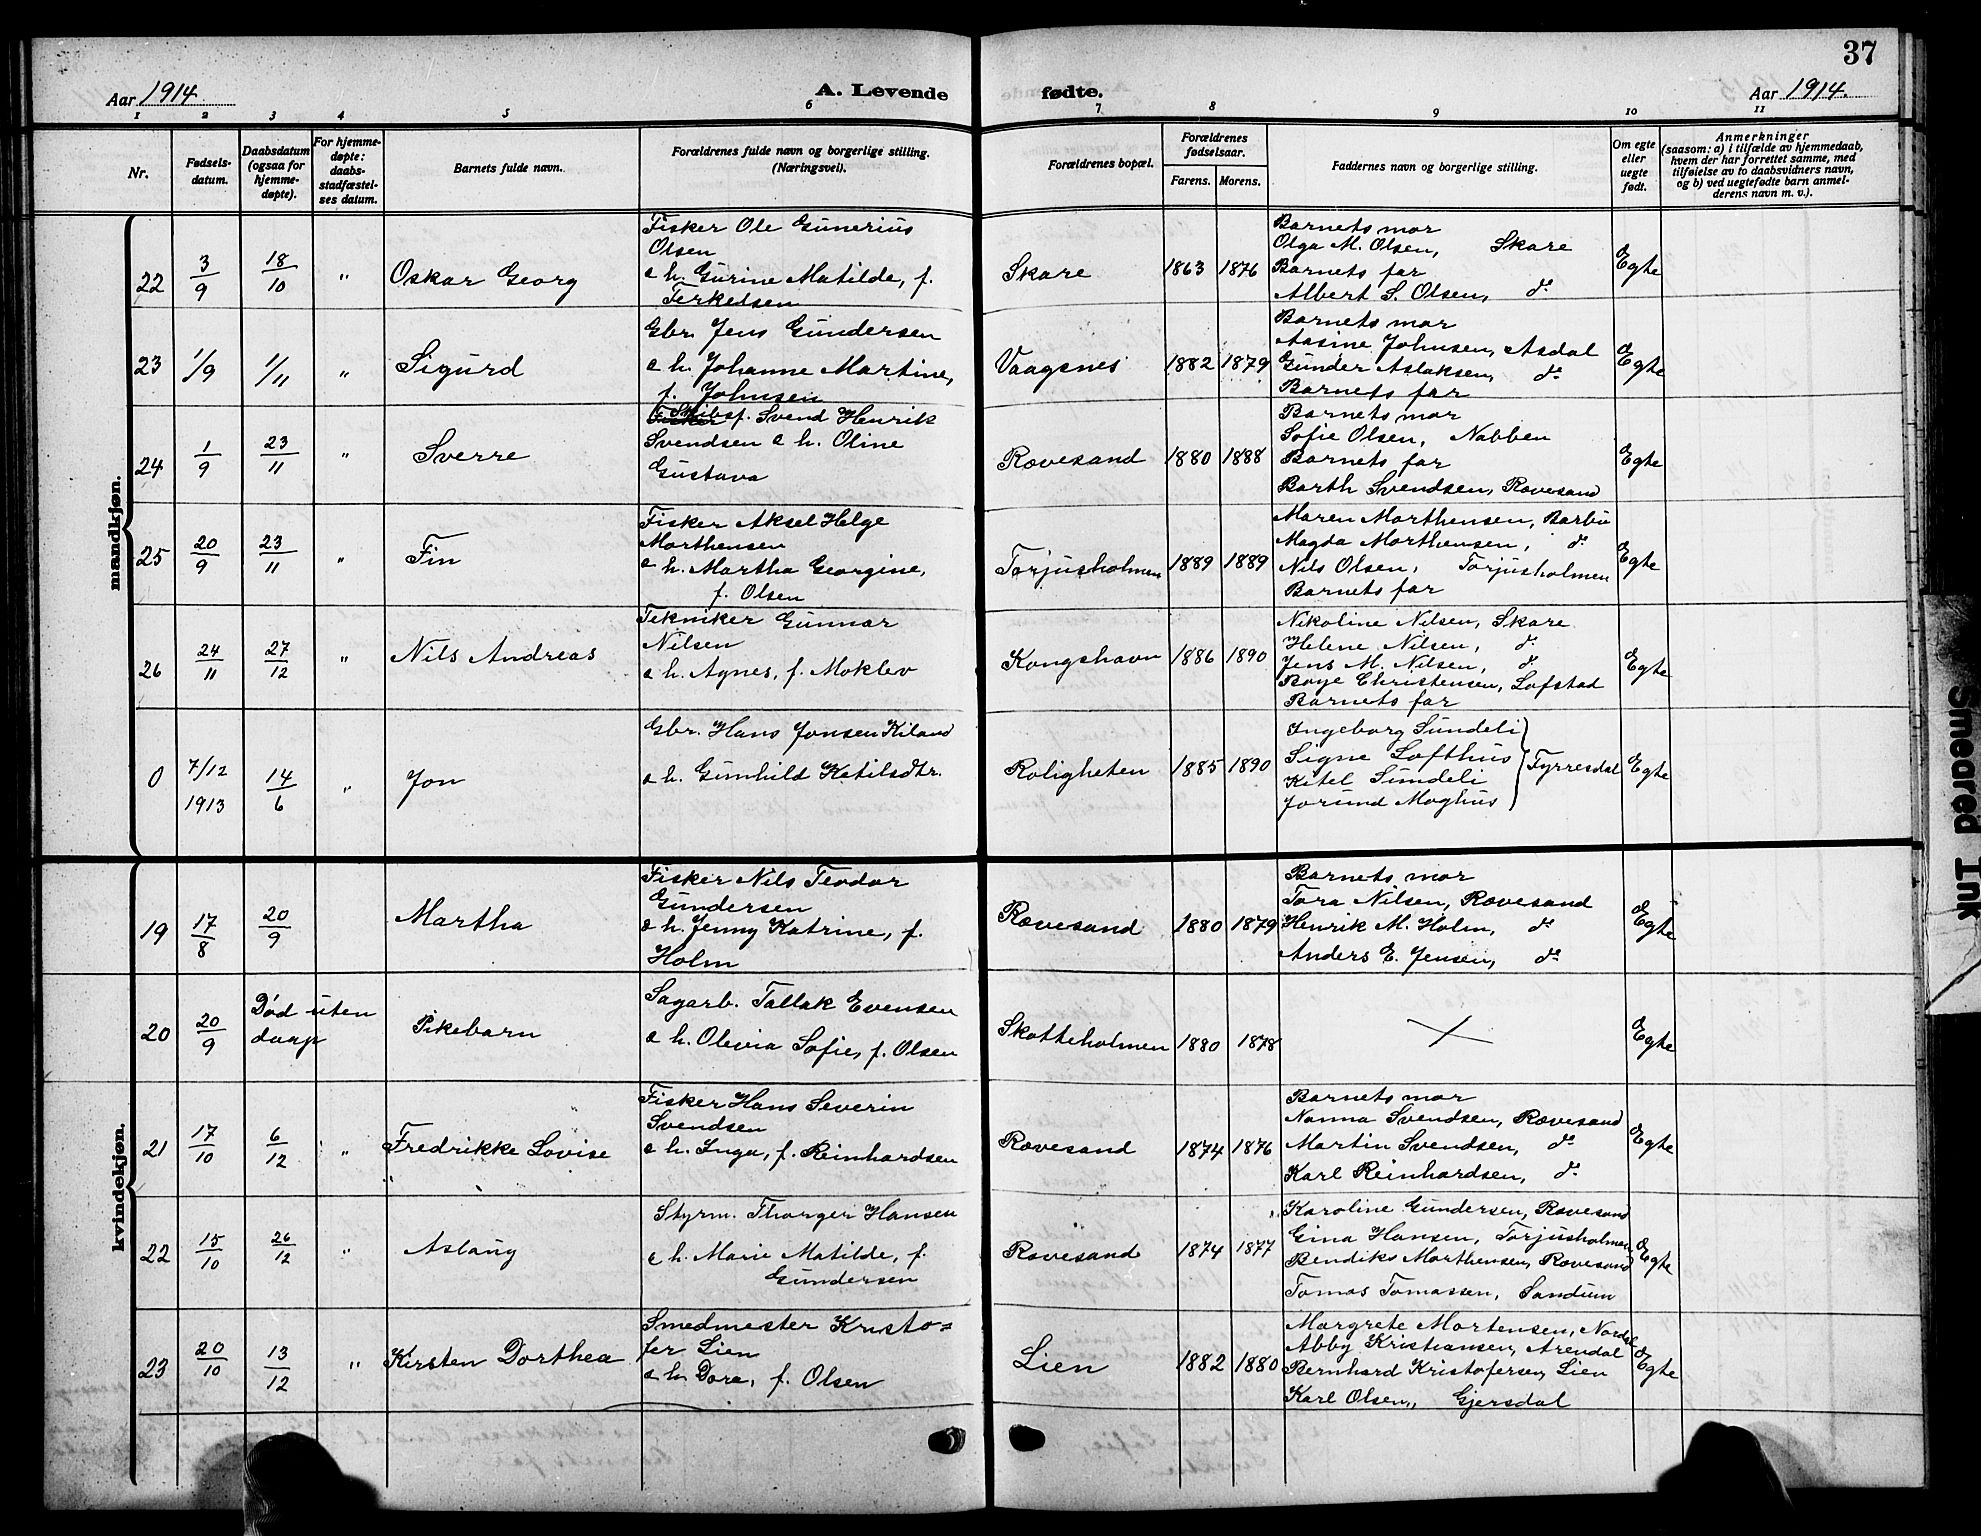 37
Aar 1914.
A. Levende
fødte.
Aar 1914.
1 2 3 4 5 6 7 8 9 10 11
Nr.
Fødsels-
datum.
Daabsdatum
(ogsaa for
hjemme-
døpte).
For hjemme-
døpte:
daabs-
stadfæstel-
ses datum.
Barnets fulde navn.
Forældrenes fulde navn og borgerlige stilling.
(Næringsvei).
Forældrenes bopæl.
Forældrenes
fødselsaar.
Farens. Morens.
Faddernes navn og borgerlige stilling.
Om egte
eller
uegte
født.
Anmerkninger
(saasom: a) i tilfælde av hjemmedaab,
hvem der har forrettet samme, med
tilføielse av to daabsvidners navn,
og b) ved uegtefødte barn anmel-
derens navn m. v.).
mandkjøn.
22 3/9 18/10 " Oskar Georg
Fisker Ole Gunerius
Olsen
e h. Gurine Matilde, f.
Terkelsen
Skare 1863 1876
Barnets mor
Olga M. Olsen, Skare
Barnets far
Albert S. Olsen, do
Egte
23 1/9 1/11 " Sigurd
Gbr. Jens Gundersen
e h. Johanne Martine,
f. Johnsen
Vaagsnes 1882 1879
Barnets mor
Aasine Johnsen, Asdal
Gunder Aslaksen, do
Barnets far
Egte
24 1/9 23/11 " Sverre
Skibsf. Svend Henrik
Svendsen e h. Oline
Gustava
Rævesand 1880 1888
Barnets mor
Sofie Olsen, Nabben
Barnets far
Barth Svendsen, Rævesand
Egte
25 20/9 23/11 " Fin
Fisker Aksel Helge
Morthensen
e h. Martha Georgine,
f. Olsen
Torjusholmen 1889 1889
Maren Morthensen, Barbu
Magda Morthensen, do
Nils Olsen, Torjusholmen
Barnets far
Egte
26 24/11 27/12 " Nils Andreas
Tekniker Gunnar
Nilsen
e h. Agnes, f. Moklev
Kongshavn 1886 1890
Nikoline Nilsen, Skare
Helene Nilsen, do
Jens M. Nilsen, do
Boye Christensen, Lofstad
Barnets far
Egte
0 7/12 1913 14/6 " Jon
Gbr. Hans Jonsen Kiland
e h. Gunhild Ketilsdtr.
Roligheten 1885 1890
Ingeborg Sundeli
Signe Lofthus
Kitel Sundeli
Jorund Moghus
Tyrresdal
Egte
kvindekjøn.
19 17/8 20/9 Martha
Fisker Nils Teodor
Gundersen
e h. Jenny Katrine, f.
Holm
Rævesand 1880 1879
Barnets mor
Tora Nilsen, Rævesand
Henrik M. Holm, do
Anders E. Jensen, do
Egte
20 20/9 Død uten
daap
Pikebarn
Sagarb. Tallak Evensen
e h. Olevia Sofie, f. Olsen
Skotteholmen 1880 1878
Egte
21 17/10 6/12 " Fredrikke Lovise
Fisker Hans Severin
Svendsen
e h. Inga, f. Reinhardsen
Rævesand 1874 1876
Barnets mor
Nanna Svendsen, Rævesand
Martin Svendsen, do
Karl Reinhardsen, do
Egte
22 15/10 26/12 " Aslaug
Styrm. Thorger Hansen
e h. Marie Matilde, f.
Gundersen
Rævesand 1874 1877
Karoline Gundersen, Rævesand
Gina Hansen, Torjusholmen
Bendiks Morthensen, Rævesand
Tomas Tomassen, Sandum
Egte
23 20/10 13/12 " Kirsten Dorthea
Smedmester Kristo=
fer Lien
e h. Dora, f. Olsen
Lien 1882 1880
Margrete Mortensen,
Abby Kristiansen, Arendal
Bernhard Kristofersen, Lien
Karl Olsen, Gjersdal
Egte
Smeared Ink